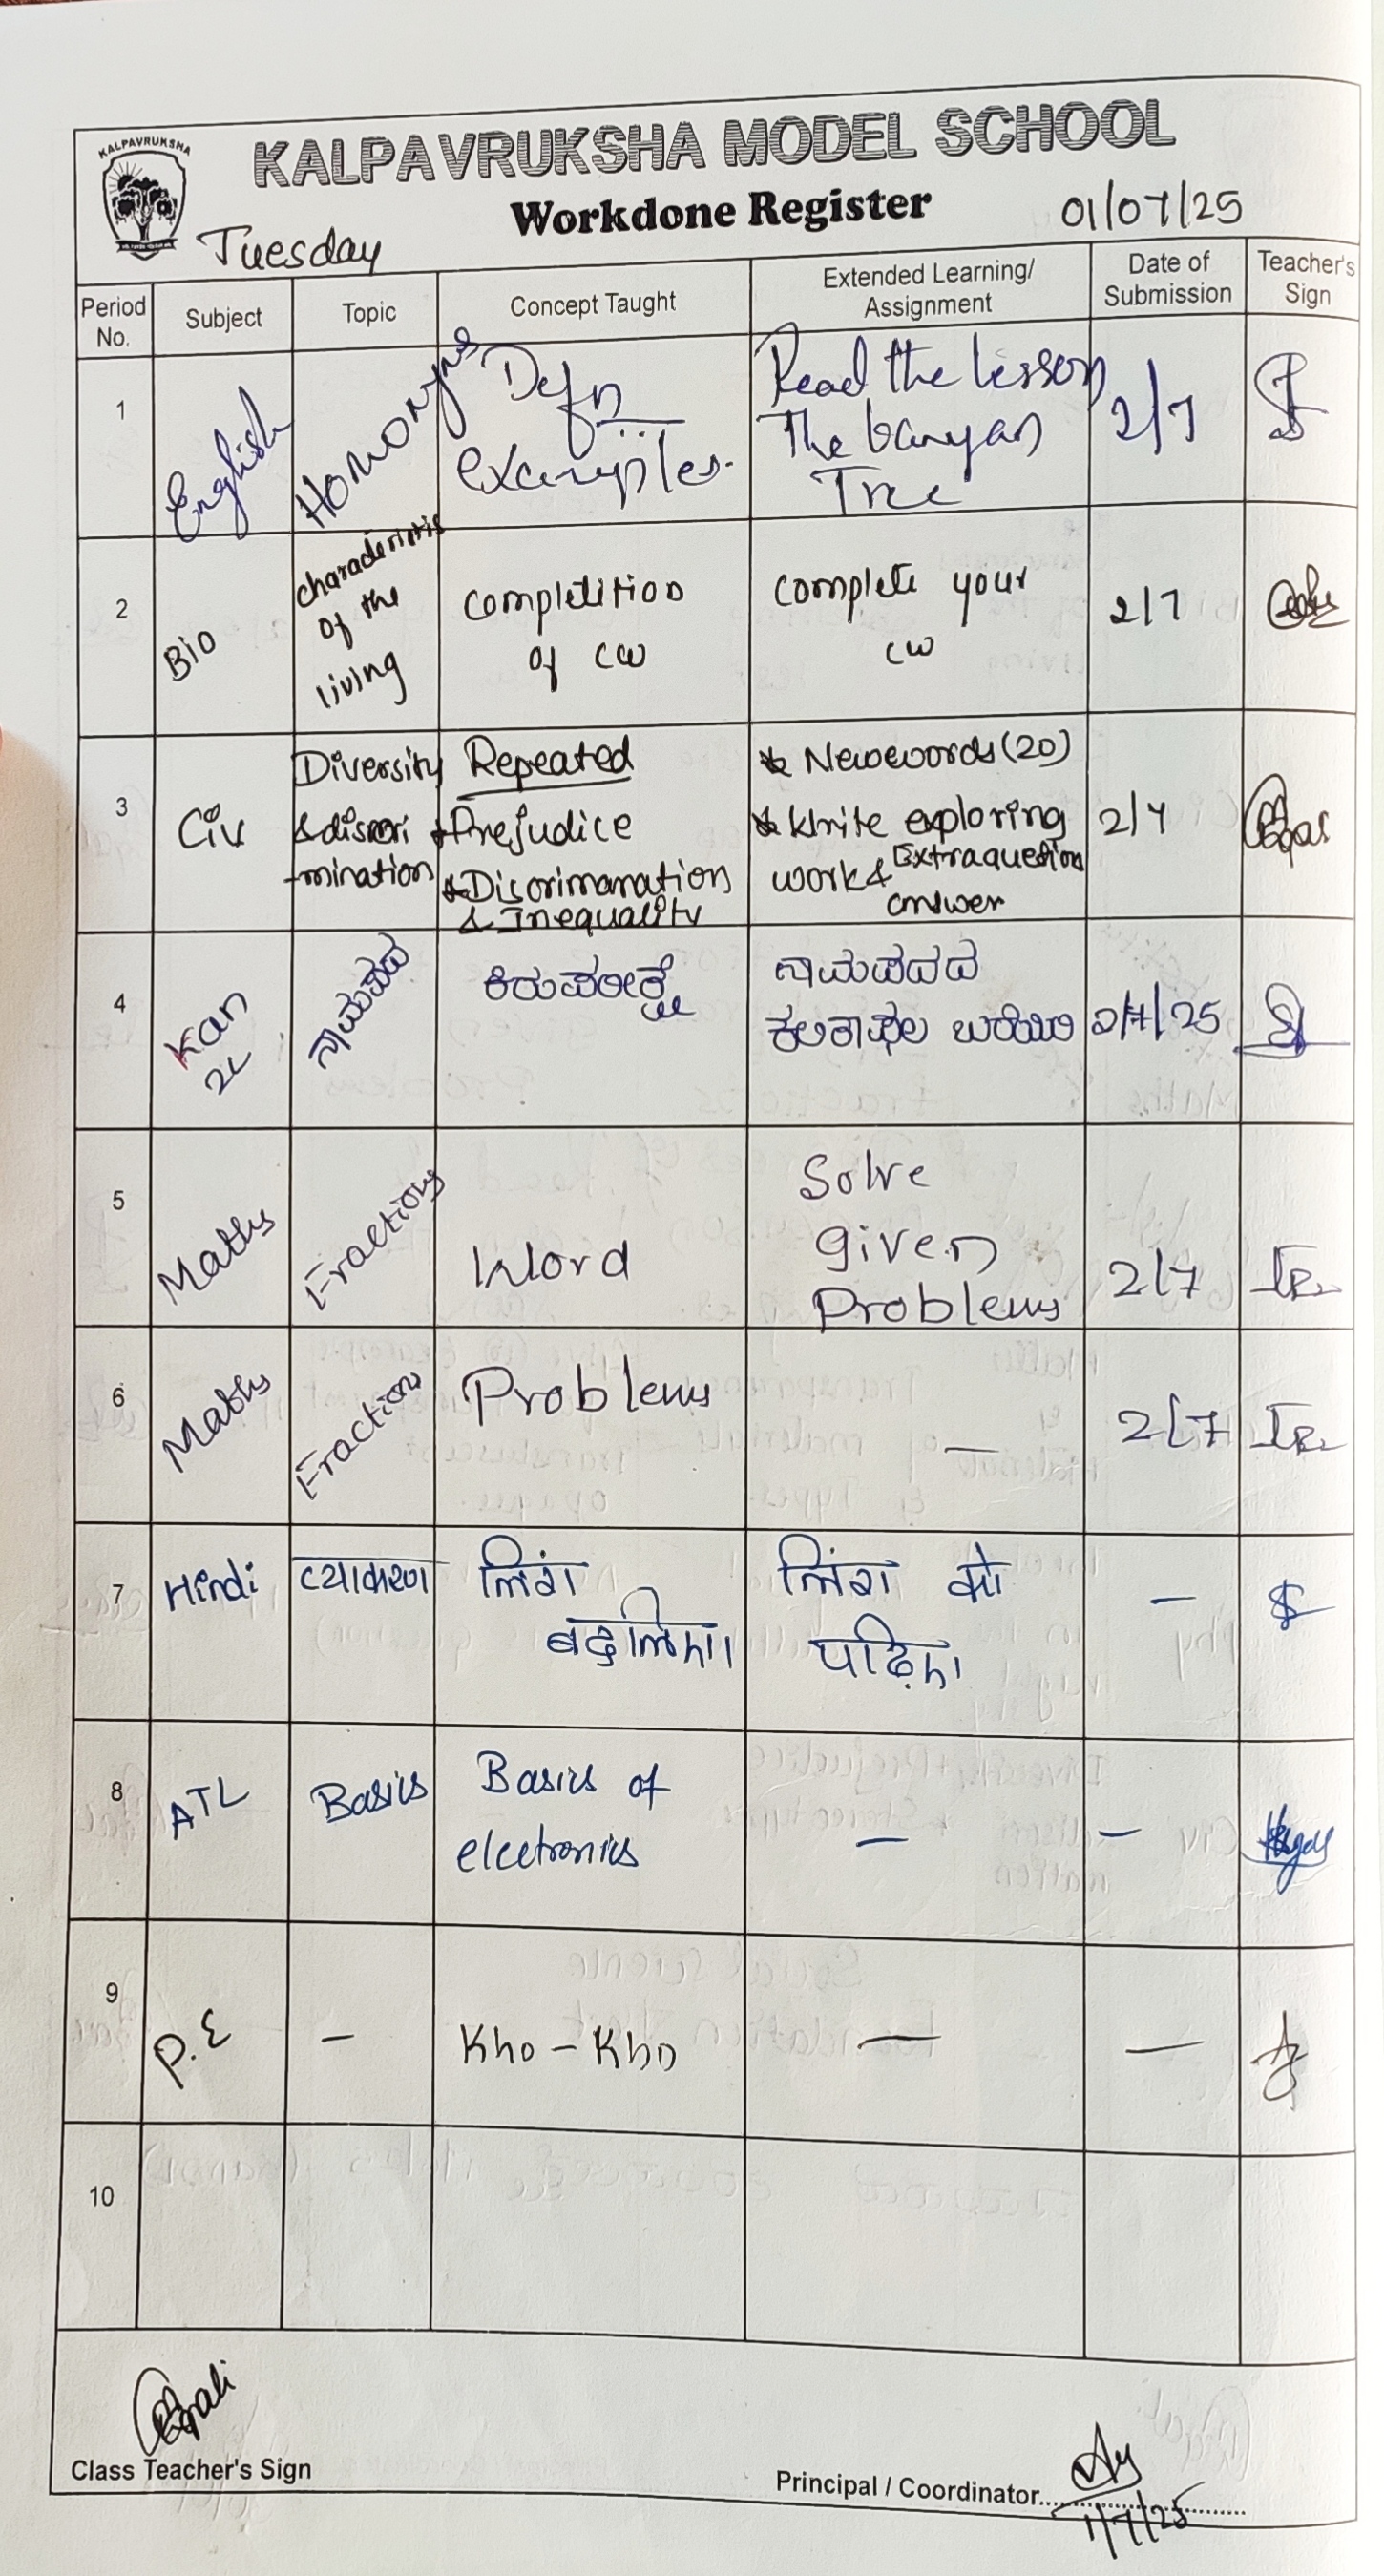 KALPAVRUKSHA
KALPAVRUKSHA MODEL SCHOOL
Workdone Register
01/07/25
Tuesday
Period No.
Subject
Topic
Concept Taught
Extended Learning/ Assignment
Date of Submission
Teacher's Sign
1
English
Homonyms
Defn
examples.
Read the lesson
The banyan
Tree
2/7
2
Bio
characteristic
of the
living
completition
of cw
complete your
cw
2/7
3
Civ
Diversity
& discri
-mination
Repeated
*Prejudice
*Discrimanation
& Inequality
* New words (20)
* Write exploring
work & Extra question
answer
2/7
4
Kan
2L
ನಾಮಪದ
ಕಿರುಪರೀಕ್ಷೆ
ನಾಮಪದದ
ಕಲಿಕಾಫಲ ಬರೆಯಿರಿ
2/7/25
5
Maths
Fractions
Word
Solve
given
Problems
2/7
6
Maths
Fractions
Problems
—
2/7
7
Hindi
व्याकरण
लिंग
बदलिए।
लिंग को
पढ़िए।
—
8
ATL
Basics
Basics of
elcetronics
—
—
9
P.E
—
Kho-Kho
—
—
10
Class Teacher's Sign
Principal / Coordinator
1/7/25